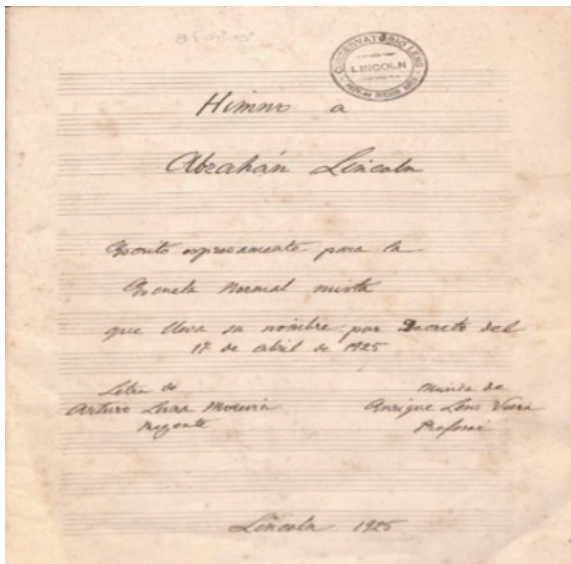 CONSERVATORIO LENS
LINCOLN
Himno a
Abrahán Lincoln
Escrito expresamente para la
Escuela Normal mixta
que lleva su nombre por Decreto del
17 de abril de 1925
Letra de
Arturo Luna
Regente
Música de
Enrique Lens Viera
Profesor
Lincoln 1925